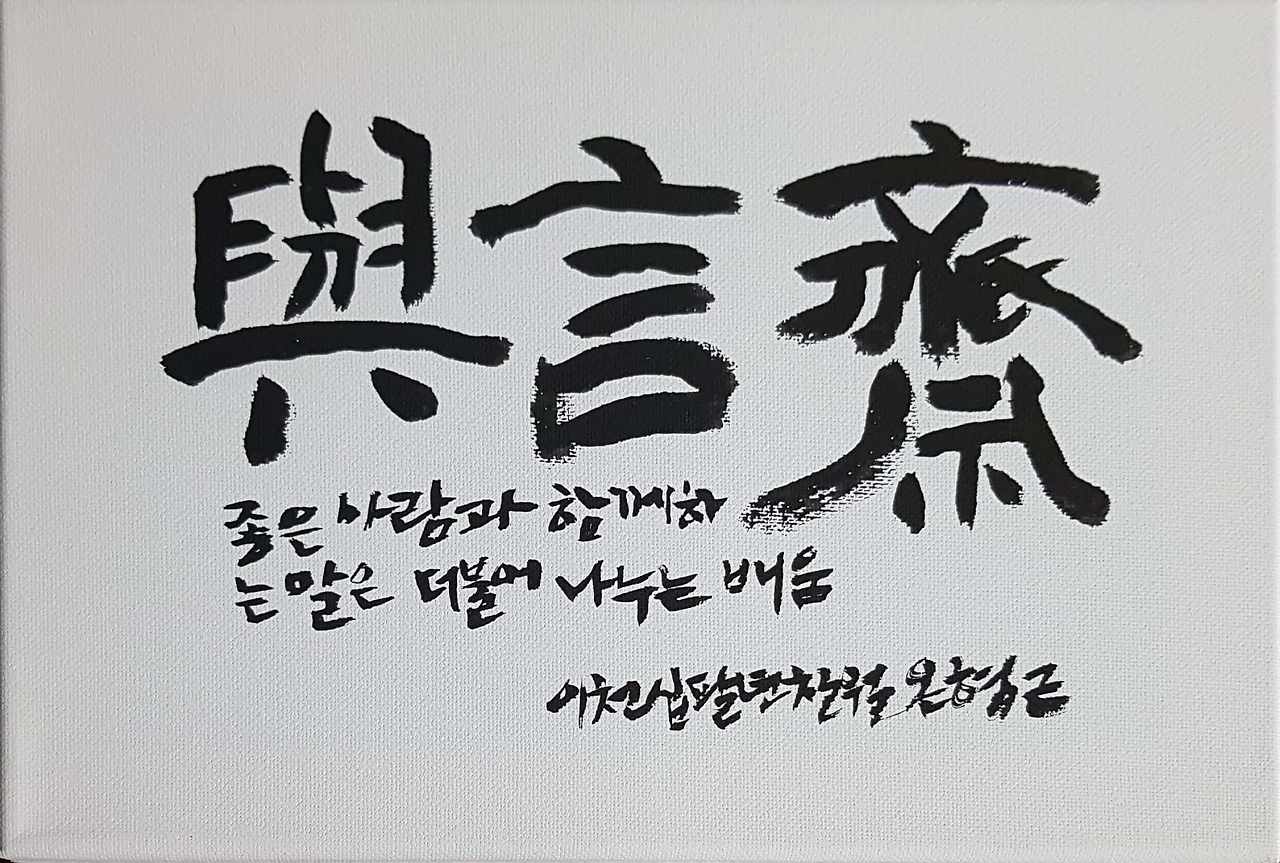 與言齋
좋은 사람과 함께하
는 말은 더불어 나누는 배움
이천십팔년 온형근